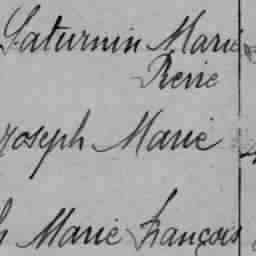 Saturnin Marie
René
Joseph Marie
h Marie François